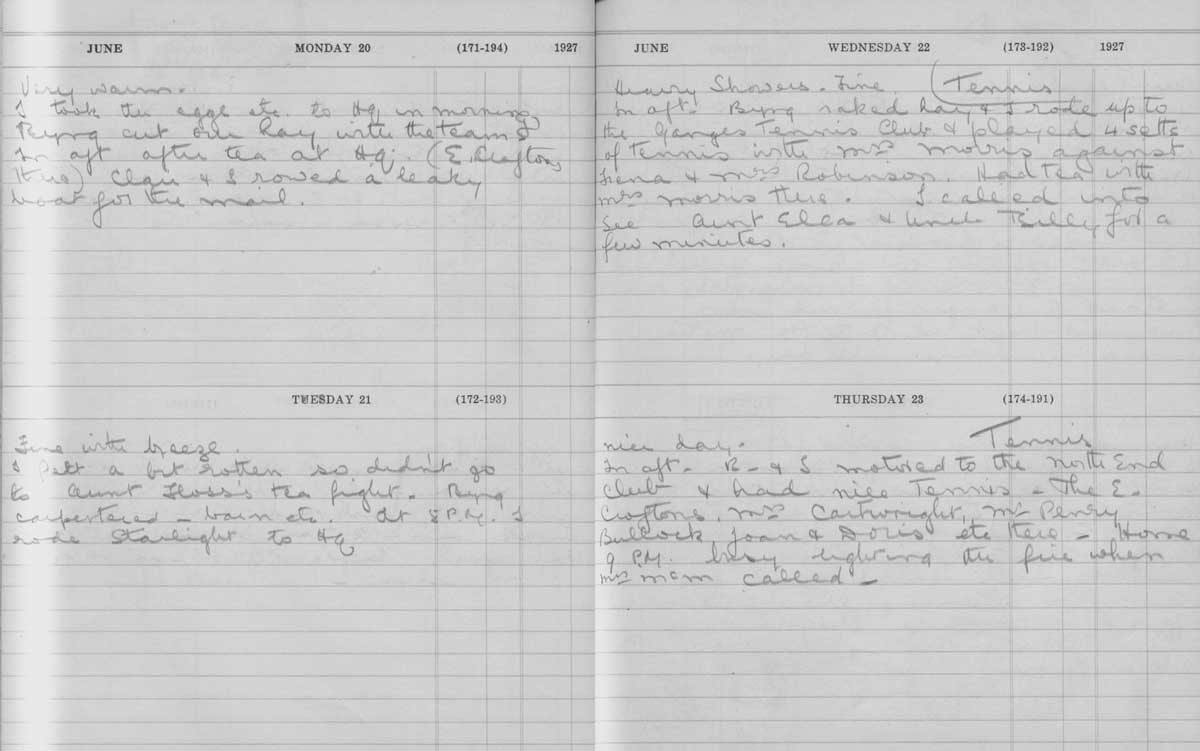 JUNE MONDAY 20 (171-194) 1927
Very warm.
I took the eggs etc. to Hq in morning
Byng cut our hay with the team &
in aft after tea at Hq. (E. Croftons
there) Clair & I rowed a leaky
boat for the mail.
TUESDAY 21 (172-193)
Fine with breeze.
I felt a bit rotten so didn't go
to Aunt Floss's tea fight. Byng
carpentered - barn etc. At 8 P.M. I
rode Starlight to Hq
JUNE WEDNESDAY 22 (173-192) 1927
Heavy Showers. Fine (Tennis
In aft. Byng raked hay & I rode up to
the Ganges Tennis Club & played 4 setts
of tennis with Mrs Morris against
& Mrs Robinson. Had tea with
Mrs Morris there. I called into
see Aunt Ella & Uncle Billy for a
few minutes.
THURSDAY 23 (174-191)
nice day. Tennis
In aft - B - & I motored to the North End
Club & had nice Tennis - The E.
Croftons, Mrs Cartwright, Mr Penry
Bullock, Joan & Doris etc there - Home
9 P.M. busy lighting the fire when
Mrs McM called -